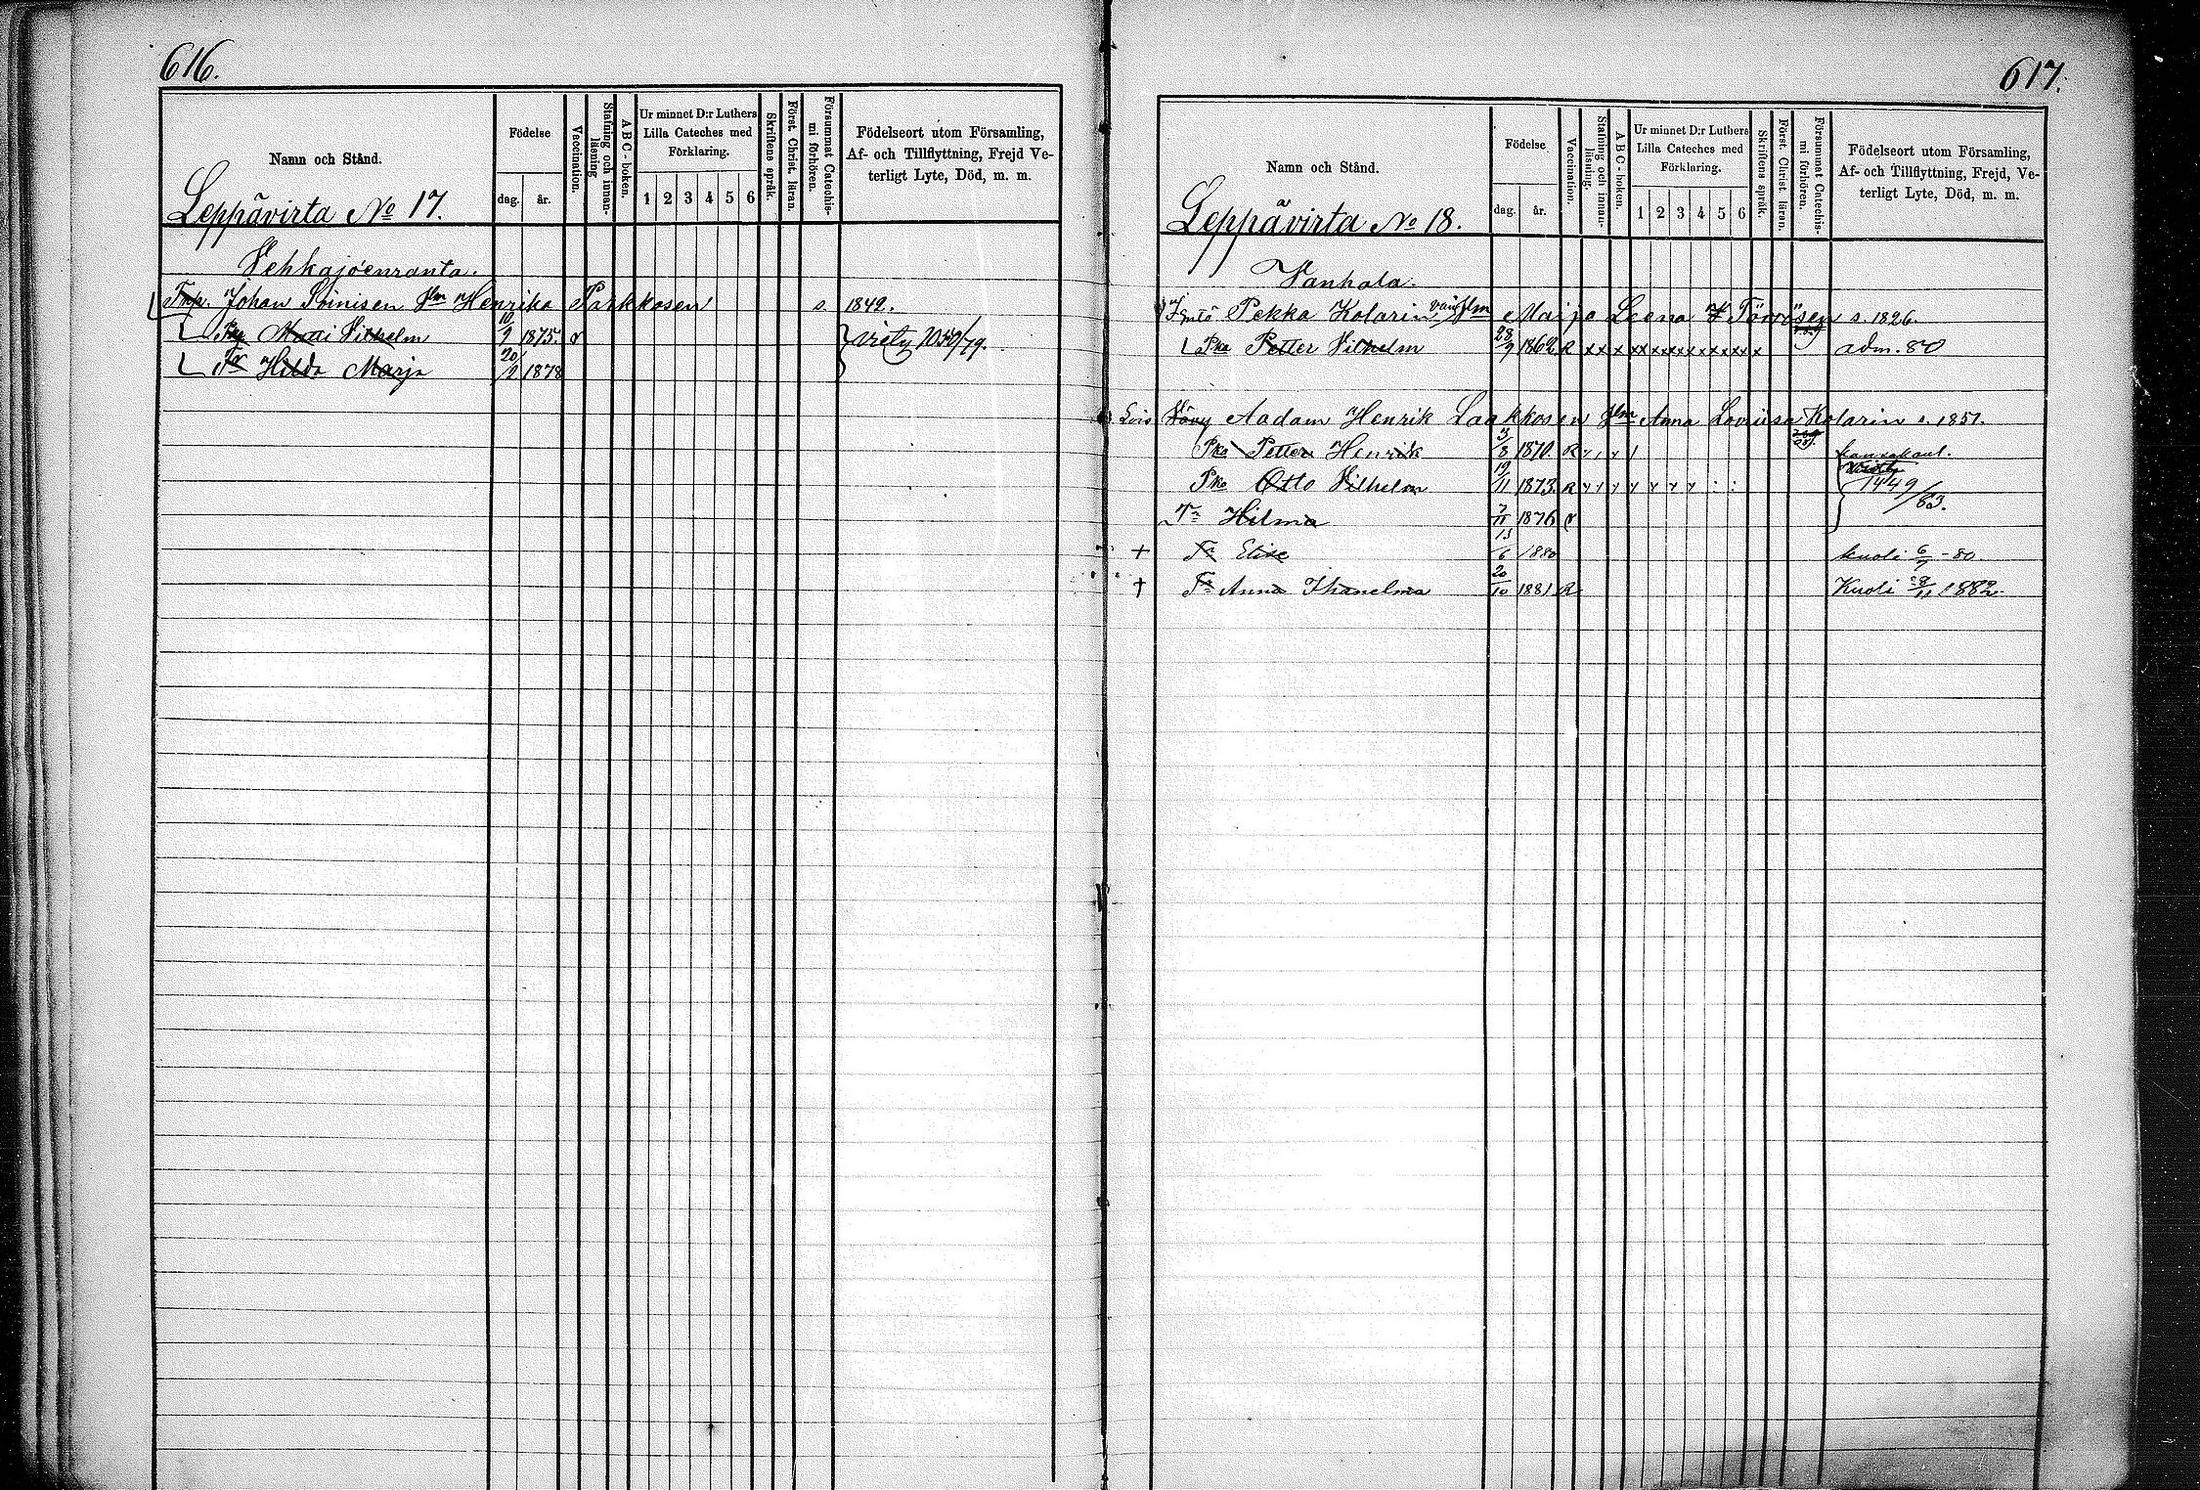 616.
Namn och Stånd.
Födelse
dag.
år.
Vaccination.
Stafning och innan-
läsning
ABC-boken.
Ur minnet D:r Luthers
Lilla Cateches med
Förklaring.
1 2 3 4 5 6
Skriftens språk.
Först. Christ. läran.
Försummat Catechis-
mi förhören.
Födelseort utom Församling,
Af- och Tillflyttning, Frejd Ve-
terligt Lyte, Död, m. m.
Leppävirta No 17.
Vehkajoenranta.
Johan Soinisen Henrika Parkkosen s. 1849.
Vilhelm 10/9 1875.
Hilda Marja 20/2 1878
617.
Namn och Stånd.
Födelse
dag.
år.
Vaccination.
Stafning och innan-
läsning.
ABC-boken.
Ur minnet D:r Luthers
Lilla Cateches med
Förklaring.
1 2 3 4 5 6
Skriftens språk.
Först. Christ. läran.
Försummat Catechis-
mi förhören.
Födelseort utom Församling,
Af- och Tillflyttning, Frejd, Ve-
terligt Lyte, Död, m. m.
Leppävirta No 18.
Vanhala.
Pekka Kolarin Marja Leena s. 1826.
Pka Petter Vilhelm 28/9 1862 R x x x x x x x x x x x x adm. 80
Lois Vävy Aadam Henrik Laakkosen Anna Loviisa Kolarin s. 1851.
Pka Petter Henrik 1870. R
Pka Otto Vilhelm 19/11 1873. R 1449/83.
Tr Hilma 7/11 1876
+ Tr Elise 13/6 1880 kuoli 6/7 -80
† Tr Anna 20/10 1881 R Kuoli 1882.